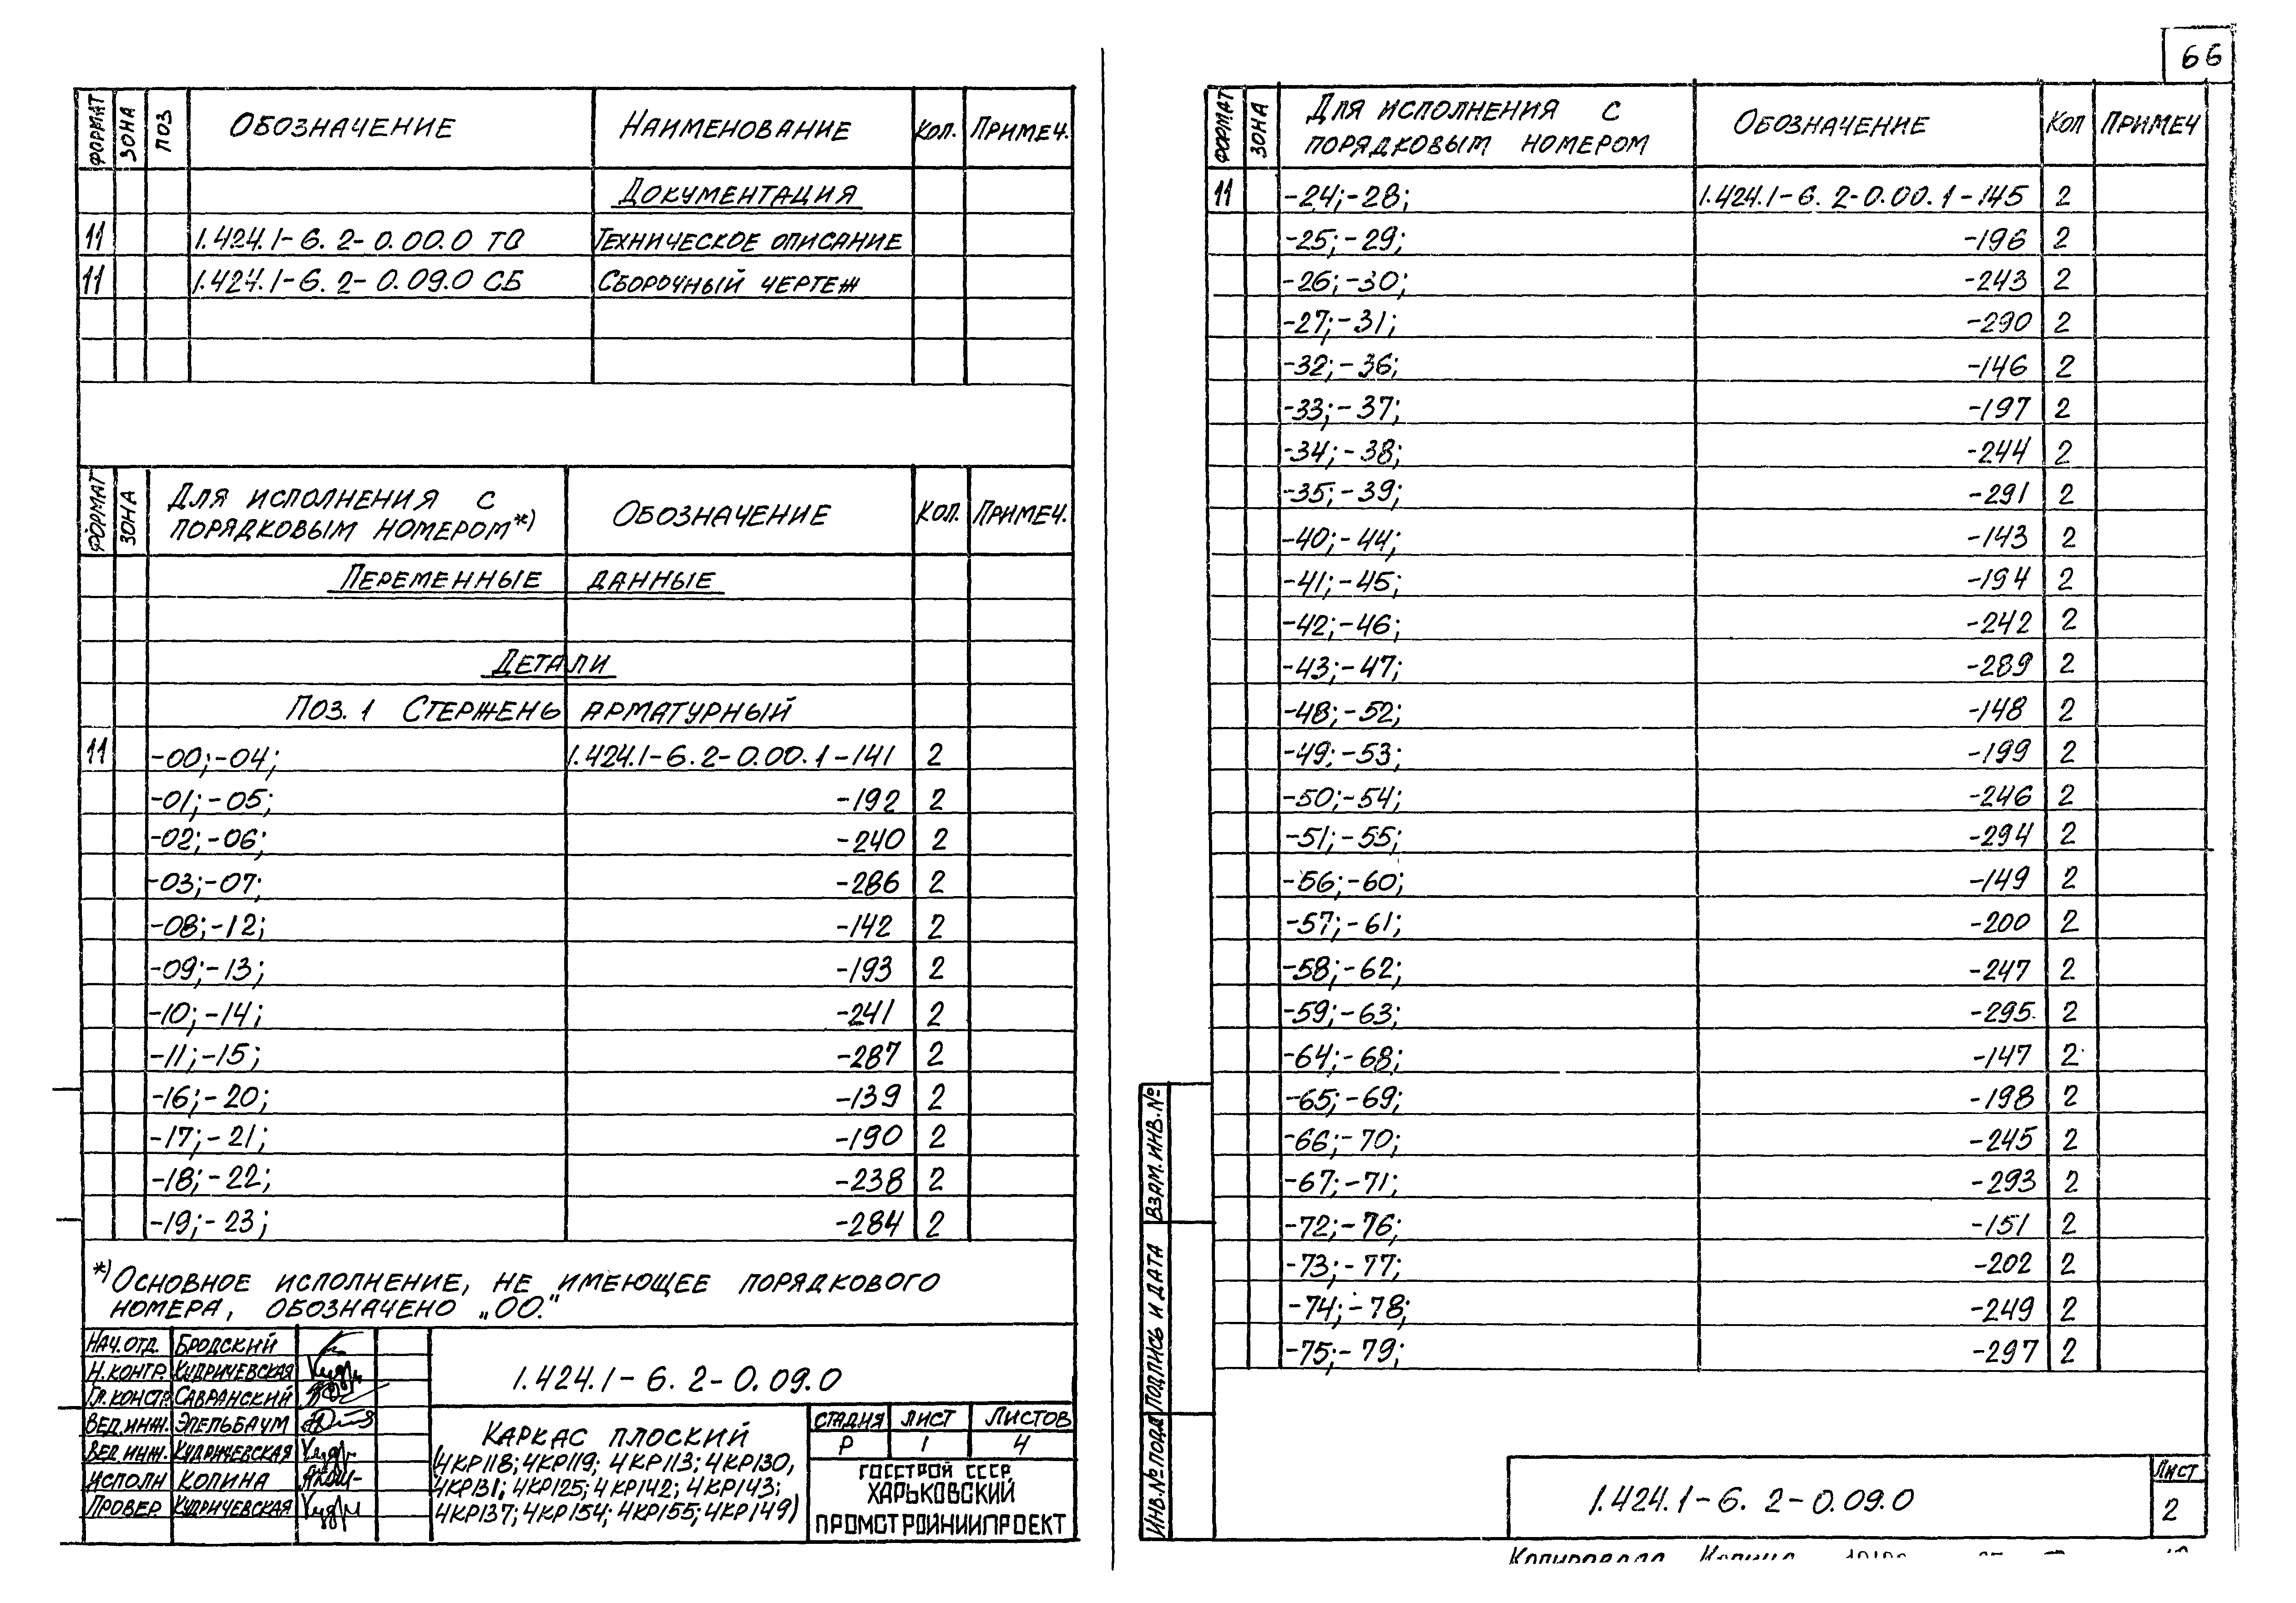 66
ФОРМАТ ЗОНА ПОЗ ОБОЗНАЧЕНИЕ НАИМЕНОВАНИЕ КОЛ. ПРИМЕЧ.
ДОКУМЕНТАЦИЯ
11 1.424.1-6. 2-0.00.0 ТО ТЕХНИЧЕСКОЕ ОПИСАНИЕ
11 1.424.1-6. 2-0.09.0 СБ СБОРОЧНЫЙ ЧЕРТЕЖ
ФОРМАТ ЗОНА ДЛЯ ИСПОЛНЕНИЯ С ПОРЯДКОВЫМ НОМЕРОМ*) ОБОЗНАЧЕНИЕ КОЛ. ПРИМЕЧ.
ПЕРЕМЕННЫЕ ДАННЫЕ
ДЕТАЛИ
ПОЗ. 1 СТЕРЖЕНЬ АРМАТУРНЫЙ
11 -00;-04; 1.424.1-6.2-0.00.1-141 2
-01;-05; -192 2
-02;-06; -240 2
-03;-07; -286 2
-08;-12; -142 2
-09;-13; -193 2
-10;-14; -241 2
-11;-15; -287 2
-16;-20; -139 2
-17;-21; -190 2
-18;-22; -238 2
-19;-23; -284 2
*) ОСНОВНОЕ ИСПОЛНЕНИЕ, НЕ ИМЕЮЩЕЕ ПОРЯДКОВОГО
НОМЕРА, ОБОЗНАЧЕНО „00."
НАЧ.ОТД. БРОДСКИЙ
Н.КОНТР. КУДРИЧЕВСКАЯ
ГЛ.КОНСТР. САВРАНСКИЙ
ВЕД.ИНЖ. ЭПЕЛЬБАУМ
ВЕД.ИНЖ. КУДРИЧЕВСКАЯ
ИСПОЛН КОПИНА
ПРОВЕР. КУДРИЧЕВСКАЯ
1.424.1-6. 2-0.09.0
КАРКАС ПЛОСКИЙ
(4КР118; 4КР119; 4КР113; 4КР130,
4КР131; 4КР125; 4КР142; 4КР143;
4КР137; 4КР154; 4КР155; 4КР149)
СТАДИЯ ЛИСТ ЛИСТОВ
Р 1 4
ГОССТРОЙ СССР
ХАРЬКОВСКИЙ
ПРОМСТРОЙНИИПРОЕКТ
ФОРМАТ ЗОНА ДЛЯ ИСПОЛНЕНИЯ С ПОРЯДКОВЫМ НОМЕРОМ ОБОЗНАЧЕНИЕ КОЛ ПРИМЕЧ
11 -24;-28; 1.424.1-6. 2-0.00.1-145 2
-25;-29; -196 2
-26;-30; -243 2
-27;-31; -290 2
-32;-36; -146 2
-33;-37; -197 2
-34;-38; -244 2
-35;-39; -291 2
-40;-44; -143 2
-41;-45; -194 2
-42;-46; -242 2
-43;-47; -289 2
-48;-52; -148 2
-49;-53; -199 2
-50;-54; -246 2
-51;-55; -294 2
-56;-60; -149 2
-57;-61; -200 2
-58;-62; -247 2
-59;-63; -295 2
-64;-68; -147 2
-65;-69; -198 2
-66;-70; -245 2
-67;-71; -293 2
-72;-76; -151 2
-73;-77; -202 2
-74;-78; -249 2
-75;-79; -297 2
ВЗАМ.ИНВ.№
ПОДПИСЬ И ДАТА
ИНВ.№ ПОДЛ
1.424.1-6. 2-0.09.0
ЛИСТ
2
Копировала Копина